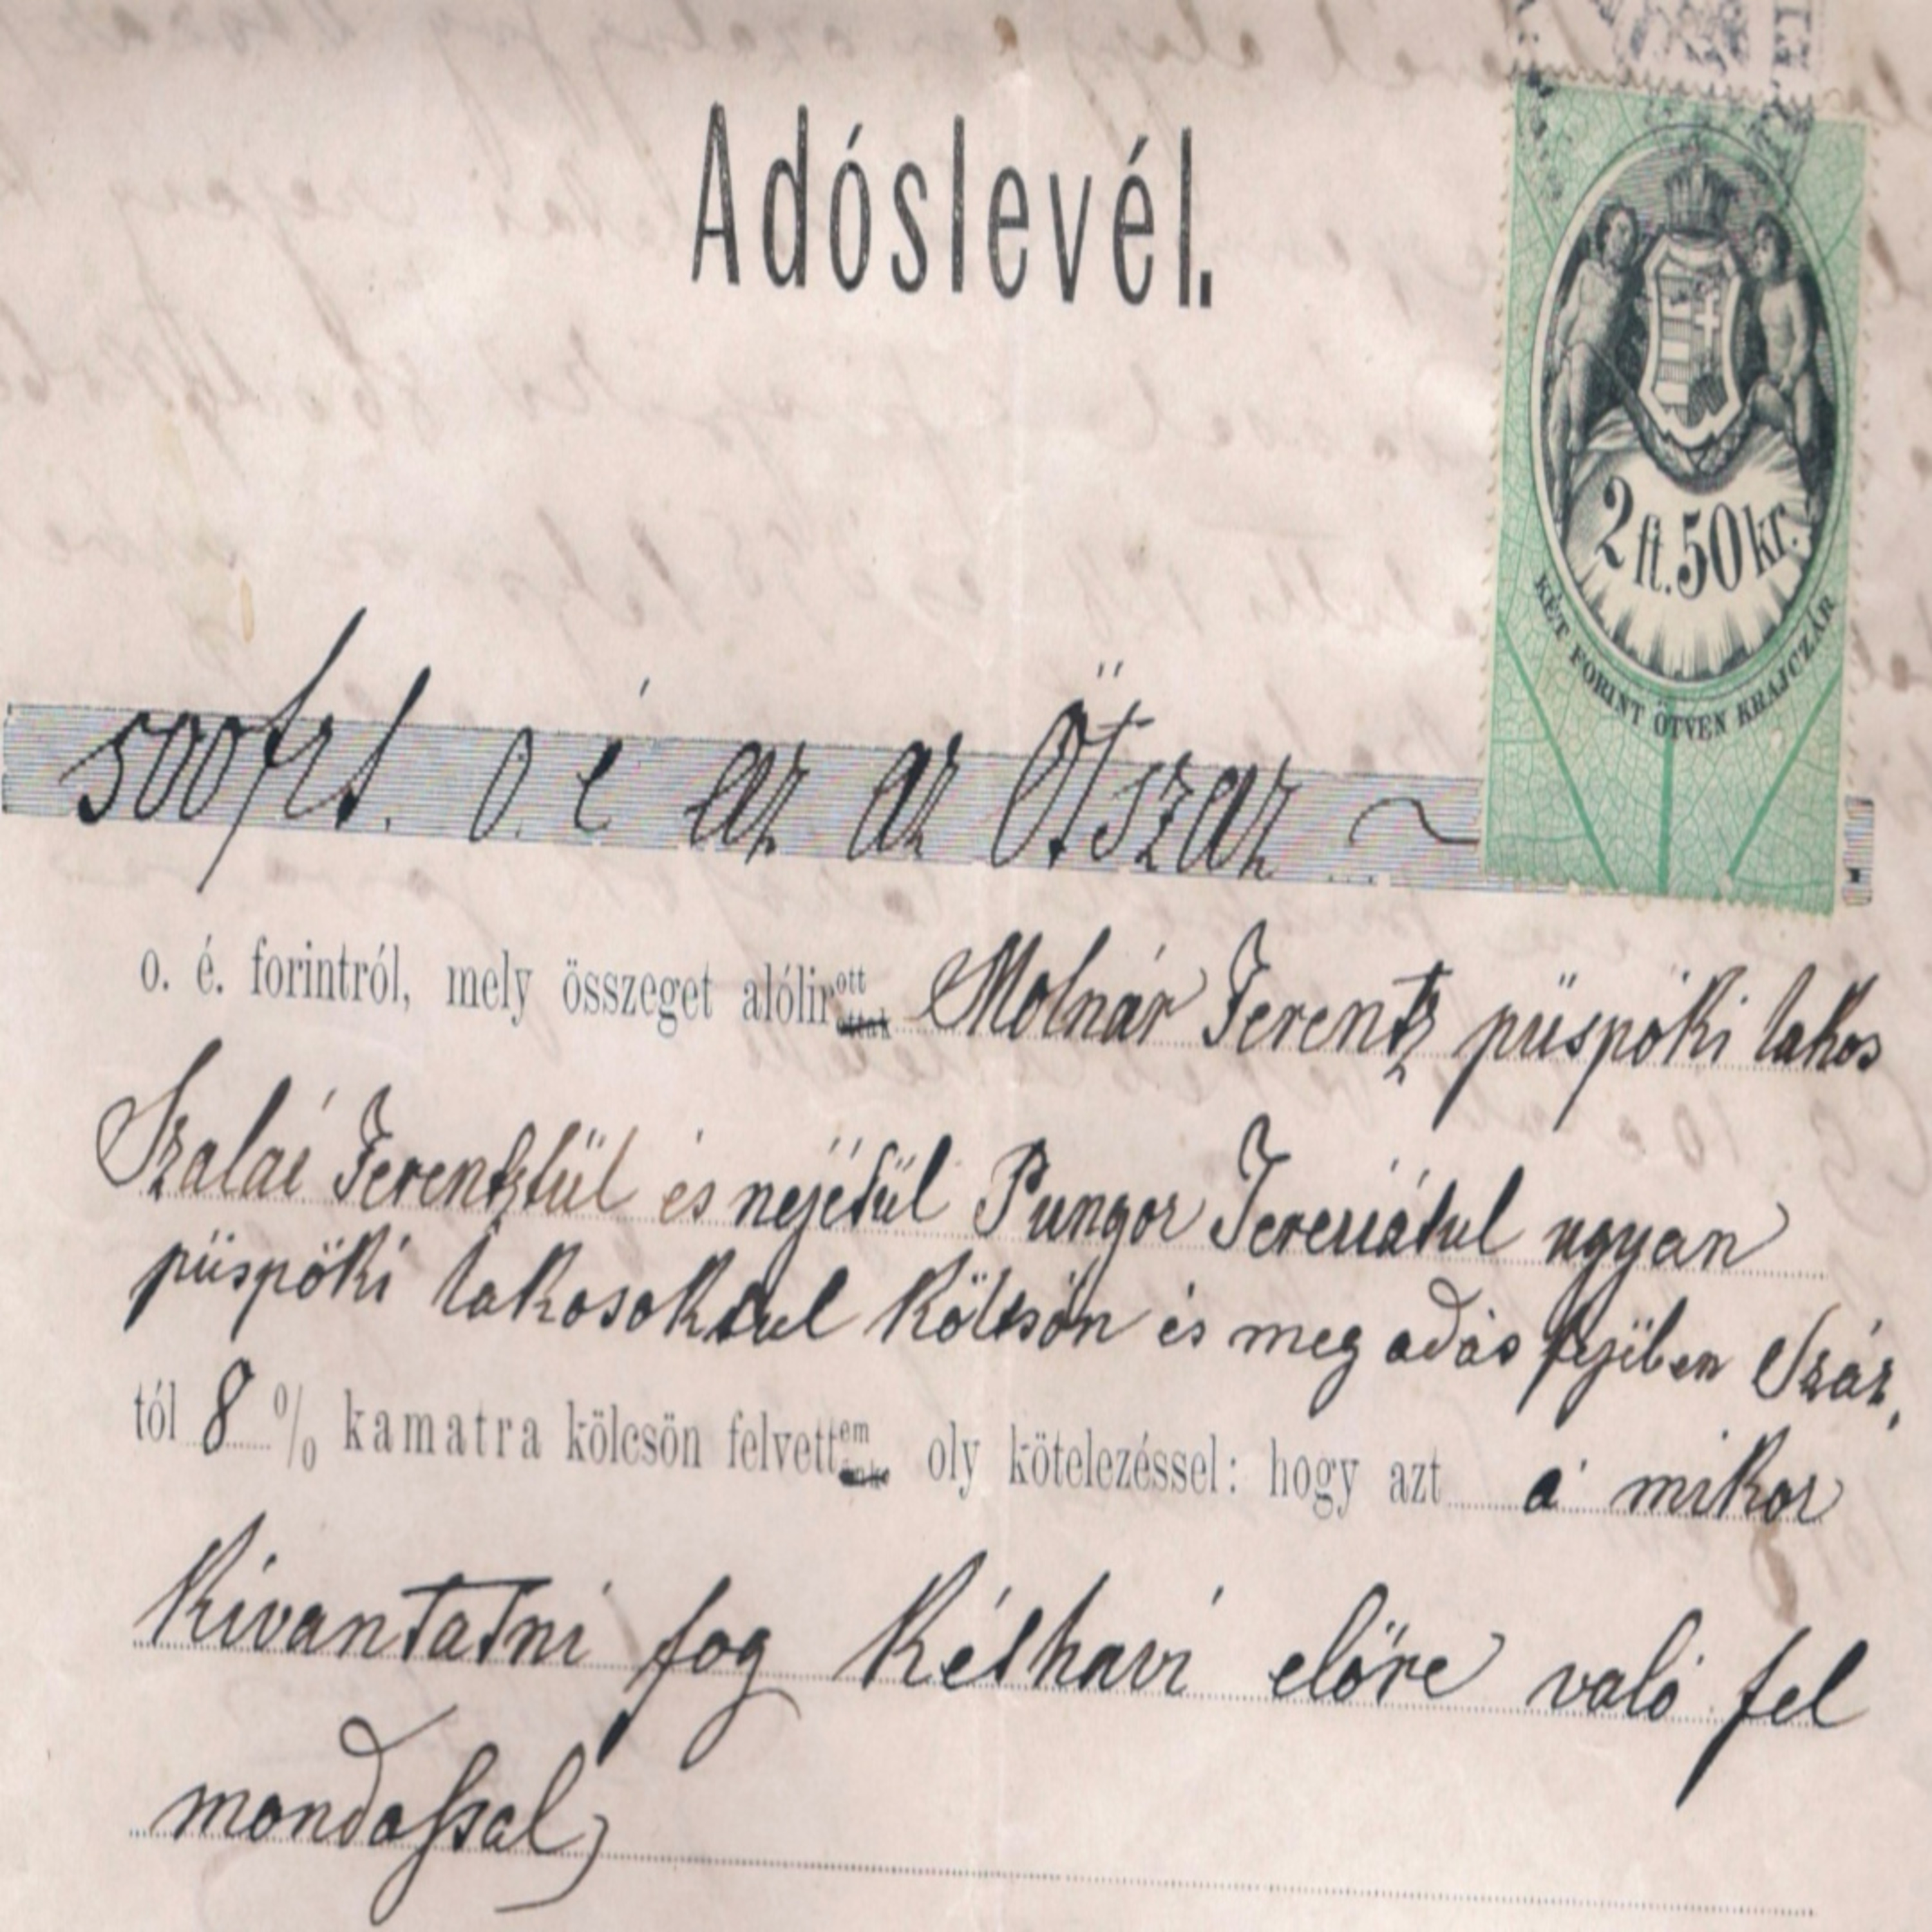 Adóslevél.
2 ft. 50 kr.
KÉT FORINT ÖTVEN KRAJCZÁR
500 frt. o. é az az Ötszaz ~
o. é. forintról, mely összeget alólirott ottak Molnár Ferentz püspöki lakos
Szalai Ferentztül és nejétül Pungor Tereziátul ugyan
püspöki lakosoktul költsön és meg adás fejiben Száz,
tól 8 % kamatra kölcsön felvettem ünk oly kötelezéssel: hogy azt a mikor
Kivantatni fog Kéthavi előre való fel
mondassal,